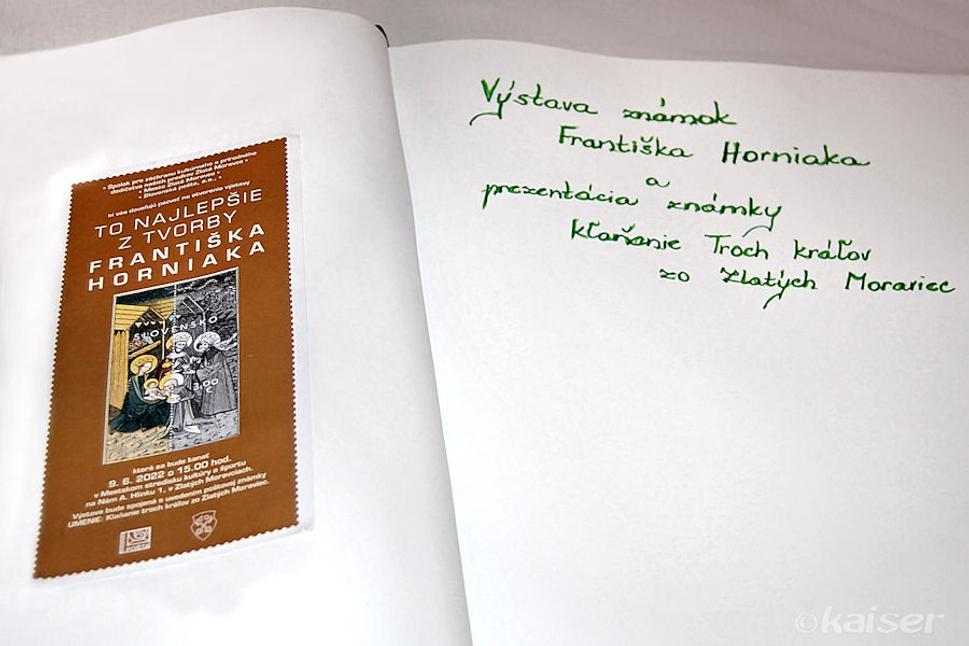 • Spolok pre záchranu kultúrneho a prírodného
dedičstva našich predkov Zlaté Moravce •
• Mesto Zlaté Moravce •
• Slovenská pošta, a.s., •
si vás dovoľujú pozvať na otvorenie výstavy
TO NAJLEPŠIE
Z TVORBY
FRANTIŠKA
HORNIAKA
SLOVENSKO
3,00
€
ktorá sa bude konať
9. 6. 2022 o 15.00 hod.
v Mestskom stredisku kultúry a športu
na Nám A. Hlinku 1, v Zlatých Moravciach.
Výstava bude spojená s uvedením poštovej známky
UMENIE: Klaňanie troch kráľov zo Zlatých Moraviec.
Výstava známok
Františka Horniaka
a
prezentácia známky
kľaňanie Troch kráľov
zo Zlatých Moraviec
©kaiser